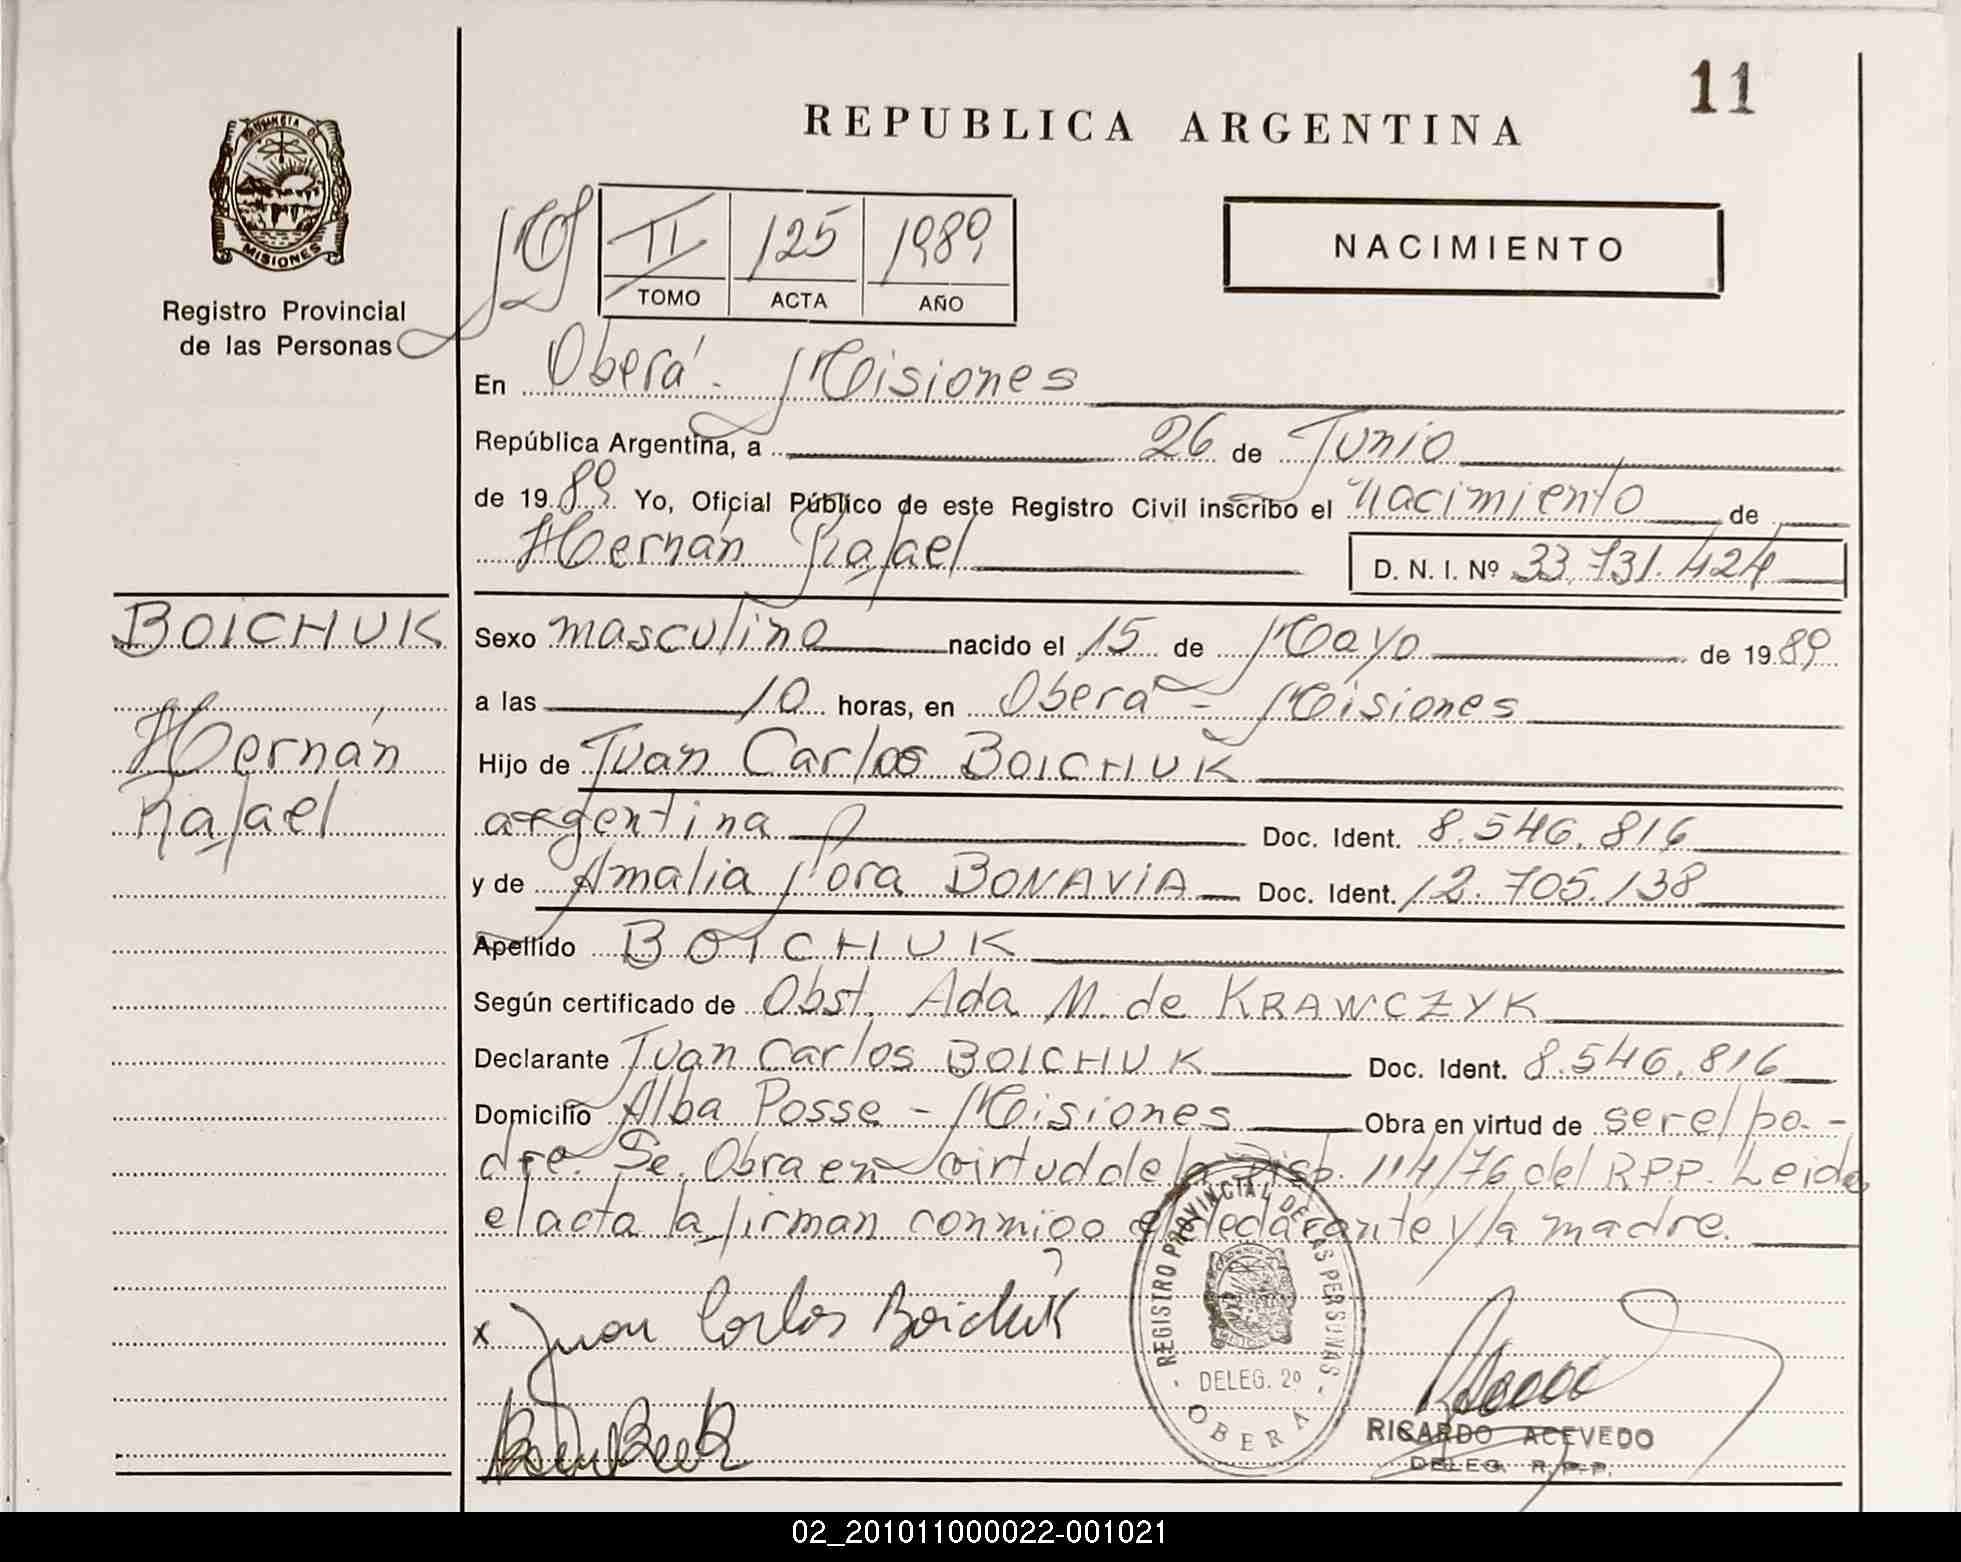 11
REPUBLICA ARGENTINA
PROVINCIA DE
MISIONES
Registro Provincial
de las Personas
II 125 1989
TOMO ACTA AÑO
NACIMIENTO
En Oberá - Misiones
República Argentina, a 26 de Junio
de 1989 Yo, Oficial Público de este Registro Civil inscribo el nacimiento de
Hernán Rafael D. N. I. Nº 33.731.424
BOICHUK
Hernán
Rafael
Sexo masculino nacido el 15 de Mayo de 1989
a las 10 horas, en Oberá - Misiones
Hijo de Juan Carlos BOICHUK
argentina Doc. Ident. 8.546.816
y de Amalia Nora BONAVIA Doc. Ident. 12.705.138
Apellido BOICHUK
Según certificado de Obst. Ada M. de KRAWCZYK
Declarante Juan Carlos BOICHUK Doc. Ident. 8.546.816
Domicilio Alba Posse - Misiones Obra en virtud de ser el pa-
dre. Se Obra en virtud de la Disp. 114/76 del R.P.P. Leida
el acta la firman conmigo el declarante y la madre.
x Juan Carlos Boichuk
REGISTRO PROVINCIAL DE LAS PERSONAS
DELEG. 2º
OBERA
RICARDO ACEVEDO
DELEG. R.P.P.
02_201011000022-001021